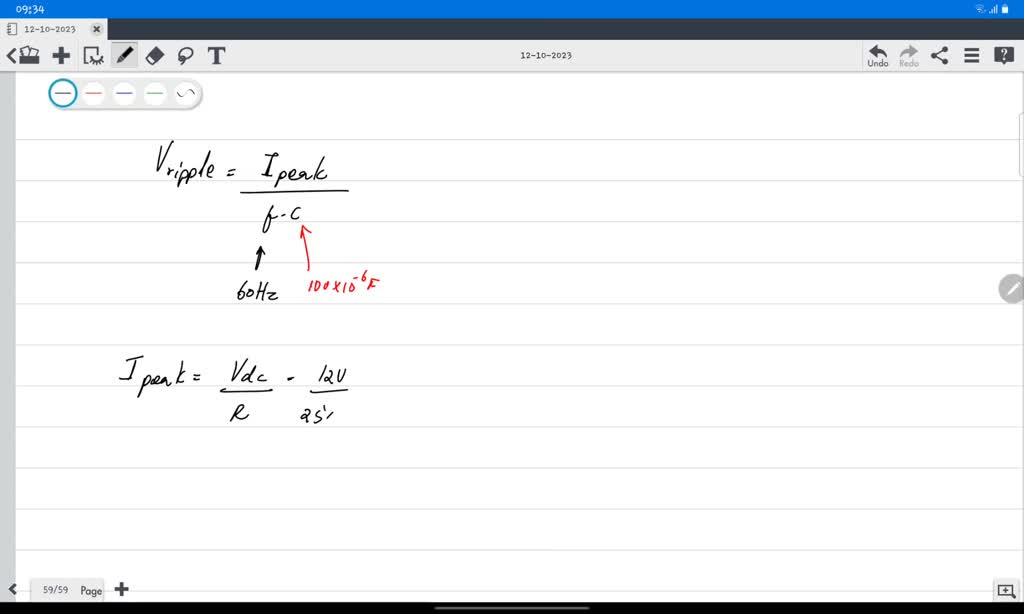 09:34
12-10-2023
T
12-10-2023
Undo
Redo
Vripple = Ipeak
f-C
60Hz
100x10-6F
Ipeak = Vdc - 12V
R
59/59 Page